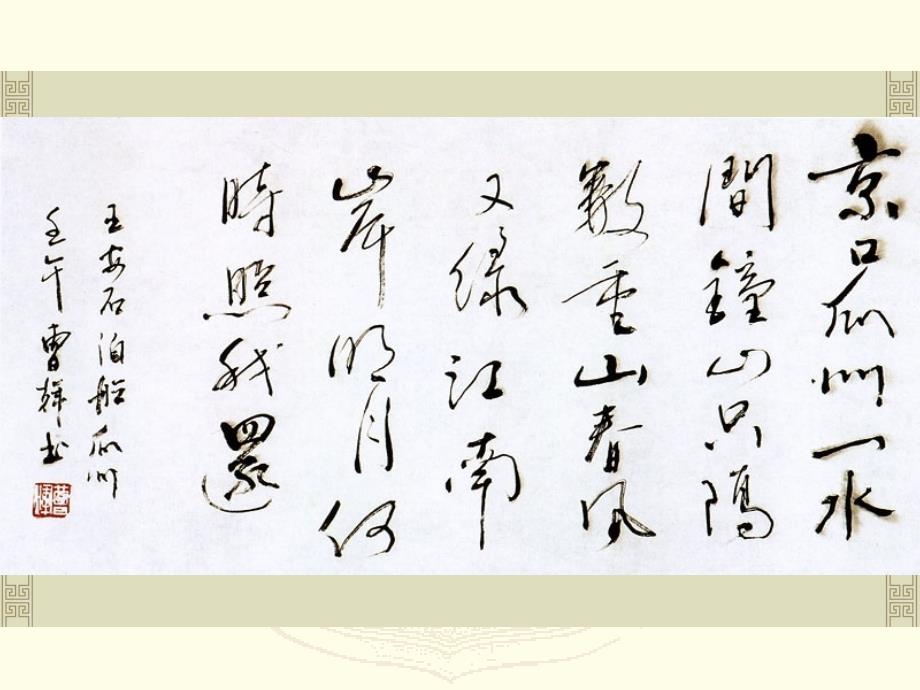 京口瓜州一水
間鐘山只隔
數重山春風
又綠江南
岸明月何
時照我還
王安石泊船瓜州
壬午曹书